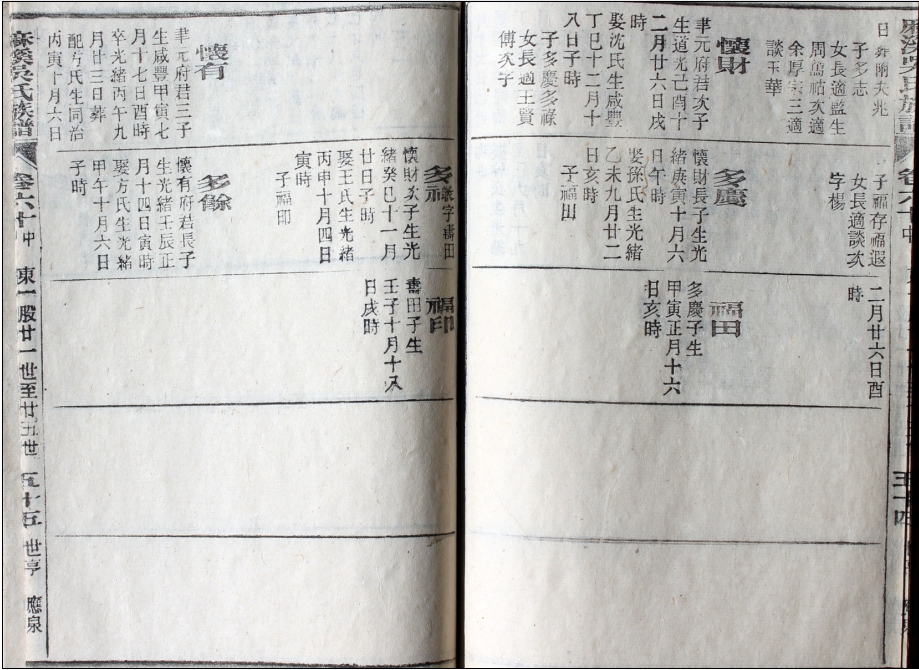 子多志
女長適監生
周萬祜次適
余厚宋三適
談玉華
懷財
聿元府君次子
生道光己酉十
二月廿六日戌
時
娶沈氏生咸豐
丁巳十二月十
八日子時
子多慶多祿
女長適王賢
傅次字
子福存福遐
女長適談次
字楊
多慶
懷財長子生光
緒庚寅十月六
日午時
娶孫氏生光緒
乙未九月廿二
日亥時
子福田
二月廿六日酉
時
福田
多慶子生
甲寅正月十六
日亥時
懷有
聿元府君三子
生咸豐甲寅七
月十七日酉時
卒光緒丙午九
月廿三日葬
配方氏生同治
丙寅十月六日
子時
多祿
懷財次子生光
緒癸巳十一月
廿日子時
娶王氏生光緒
丙申十月四日
寅時
子福印
多餘
懷有府君長子
生光緒壬辰正
月十四日寅時
娶方氏生光緒
甲午十月六日
福印
壽田子生
壬子十月十八
日戌時
麻溪吳氏族譜
卷六十中
東一股廿一世至廿五世
五十五
世亨
應泉
五十四